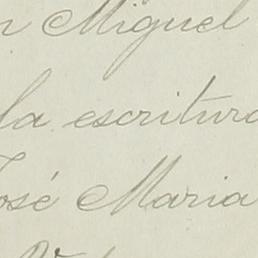 n Miguel
la escritura
José Maria